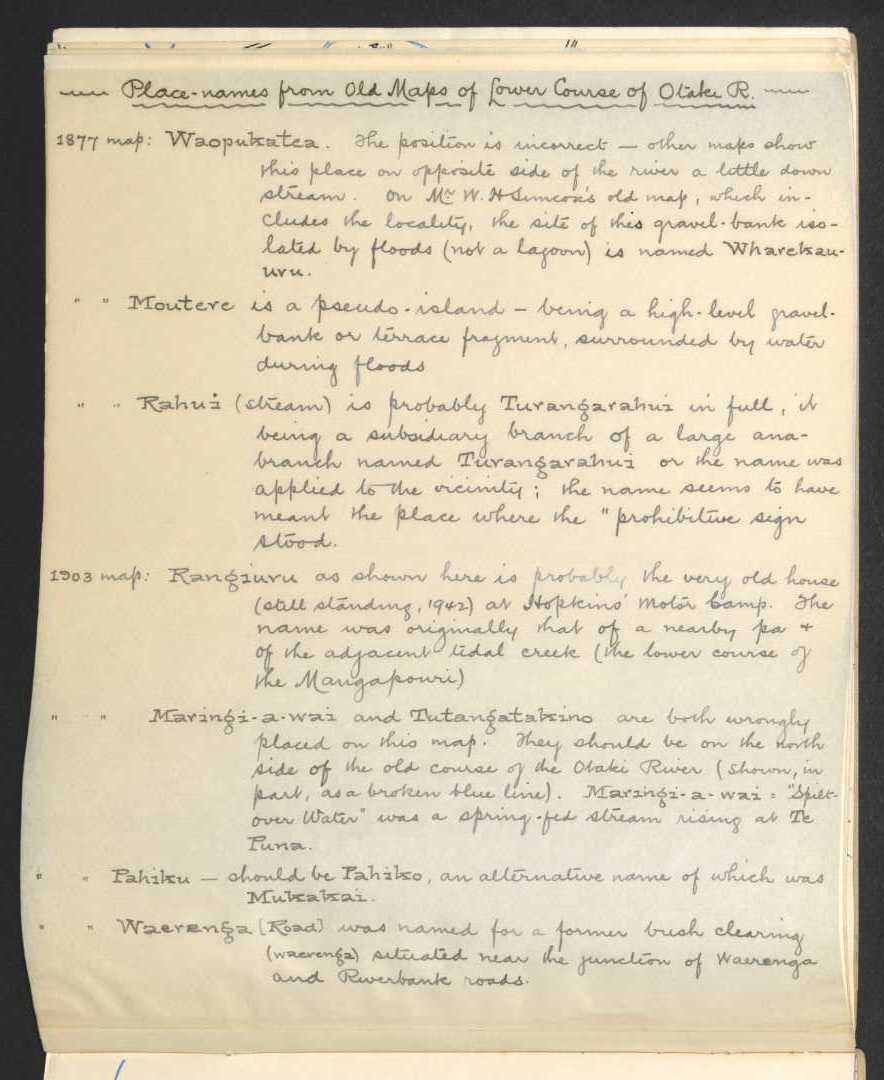 Place-names from Old Maps of Lower Course of Otaki R.
1877 map: Waopukatea. The position is incorrect — other maps show
this place on opposite side of the river a little down
stream. On Mr W. H Simcox's old map, which in-
cludes the locality, the site of this gravel-bank iso-
lated by floods (not a lagoon) is named Wharekau-
uru.
" " Moutere is a pseudo-island — being a high-level gravel-
bank or terrace fragment, surrounded by water
during floods
" " Rahui (stream) is probably Turangarahui in full, it
being a subsidiary branch of a large ana-
branch named Turangarahui or the name was
applied to the vicinity; the name seems to have
meant the place where the "prohibitive sign
stood.
1903 map: Rangiuru as shown here is probably the very old house
(still standing, 1942) at Hopkins' Motor Camp. The
name was originally that of a nearby pa +
of the adjacent tidal creek (the lower course of
the Mangapouri)
" " Maringi-a-wai and Tutangatakino are both wrongly
placed on this map. They should be on the north
side of the old course of the Otaki River (shown, in
part, as a broken blue line). Maringi-a-wai = "Spilt-
over Water" was a spring-fed stream rising at Te
Puna.
" " Pahiku — should be Pahiko, an alternative name of which was
Mukakai.
" " Waerenga (Road) was named for a former bush clearing
(waerenga) situated near the junction of Waerenga
and Riverbank roads.